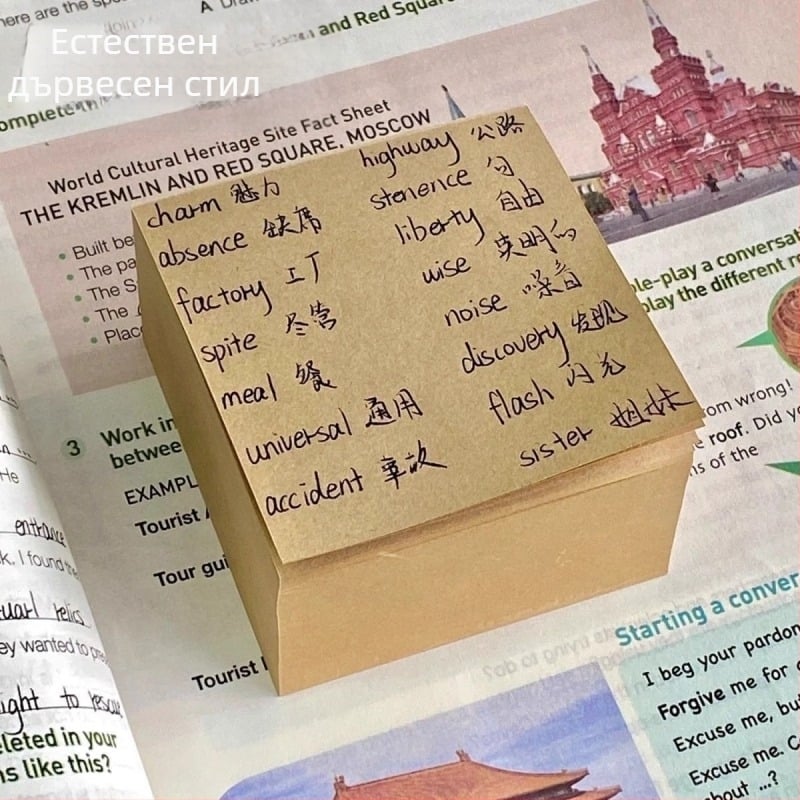 Естествен
дървесен стил
here are the spe
A Draw
and Red Square
omplete th
World Cultural Heritage Site Fact Sheet
THE KREMLIN AND RED SQUARE, MOSCOW
Built be
The pa
The S
The
Plac
charm 魅力
absence 缺席
factory 工厂
spite 尽管
meal 餐
universal 通用
accident 事故
highway 公路
stenence 句
liberty 自由
wise 英明的
noise 噪音
discovery 发现
flash 闪光
sister 姐妹
le-play a conversati
play the different ro
3 Work in
between
EXAMPL
Tourist
Tour gui
Tourist
om wrong!
roof. Did yo
ns of the
He
entrance
k. I found the
relics
ey wanted to pre
ight to rescue
eleted in your
ns like this?
Starting a conver
I beg your pardon
Forgive me for
Excuse me, but
Excuse me. C
bout ...?